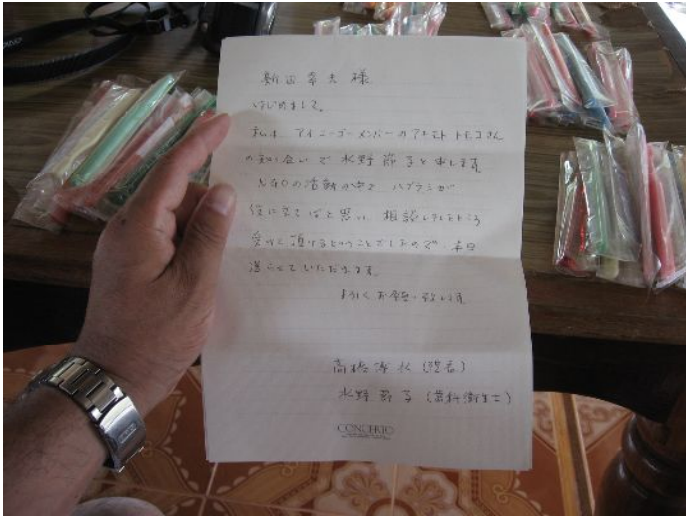 新田幸夫 様
はじめまして。
私は、アイエヌジーオーメンバーのアキモト トモコさん
の知り合いで 水野 節子と申します
NGOの活動の中で ハブラシが
役に立てばと思い、相談しましたところ
受けて頂けるということでしたので、本日
送らせていただきます。
よろしくお願い致します
高橋
水野 節子 (歯科衛生士)
CONCERTO